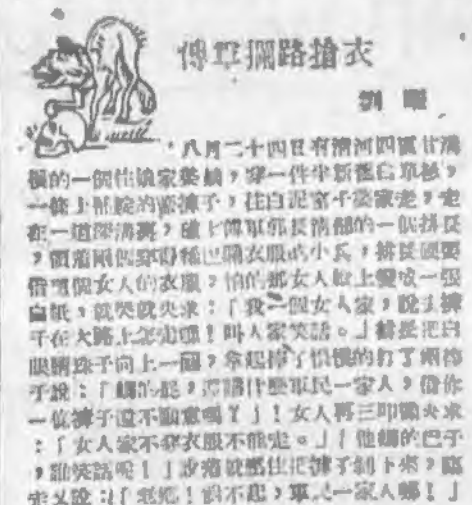 傅軍攔路搶衣
劉
八月二十四日有清河四區廿里
橫的一個住娘家婆娘，穿一件半新舊白單衫，
一條上 的藍褲子，往白泥室子婆家走，走
在一道深溝裏，碰上傅軍郭長清部的一個排長
，領着兩個穿得稀巴爛衣服的小兵，排長硬要
借這個女人的衣服，怕的那女人臉上變成一張
白紙，就哭就央求：「我一個女人家，脫了褲
子在大路上怎走哩！叫人家笑話。」排長把白
眼睛珠子向上一翻，拿起棒子狠狠的打了兩棒
子說：「媽的屁，還講什麽軍民一家人，借你
一條褲子還不願意嗎？」！女人再三叩頭央求
：「女人家不穿衣服不能走。」「他媽的巴子
，誰笑話呢！」說着就壓住把褲子剝下來，臨
走又說：「老鄉！對不起，軍民一家人哪！」